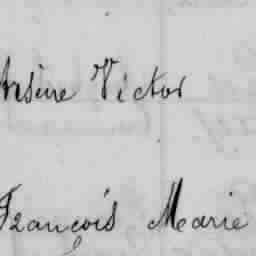 Arsène Victor
François Marie